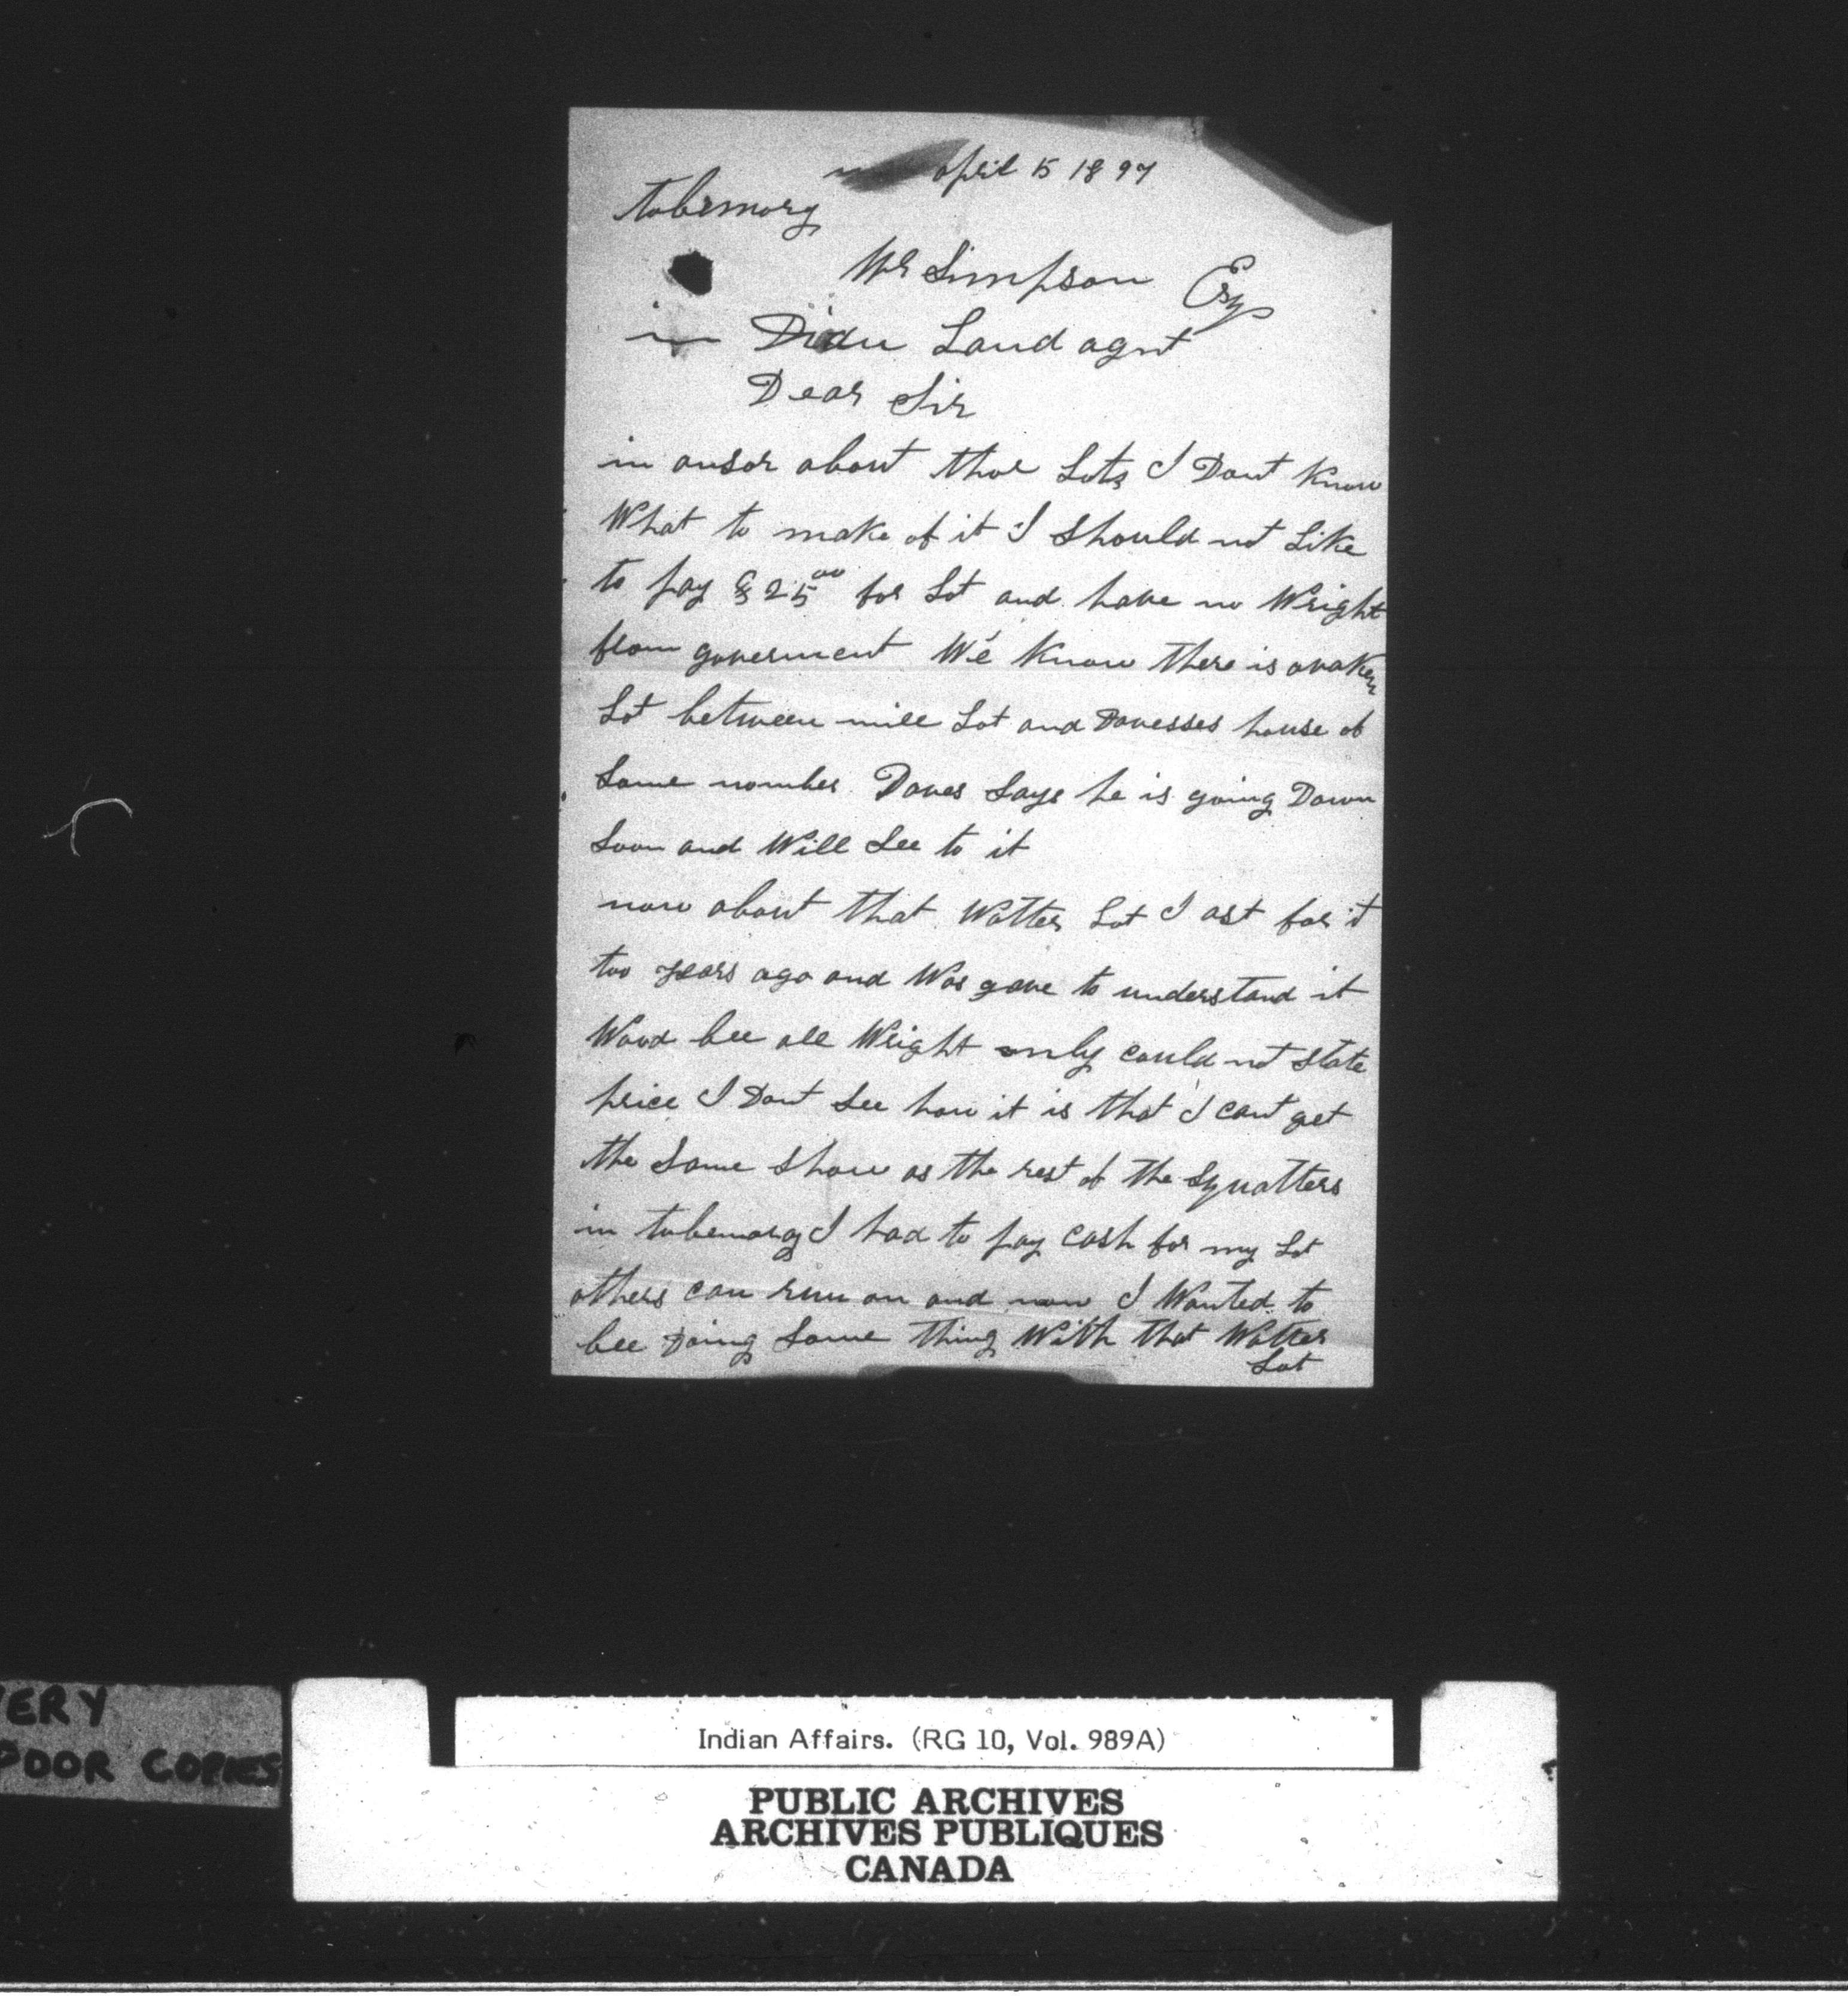 april 15 1897
tobermorg
Mr Simpson Esq
in Dian Land agnt
Dear Sir
in ansor about thoe Lots I Dont Know
What to make of it I Should not Like
to pay $25 00 for Lot and have no Wright
from goverment We Know there is avaken
Lot between mill Lot and Davesses house of
Same nomber Daves Says he is going Down
Soon and Will See to it
now about that Watter Lot I ast for it
too years ago and Was gave to understand it
Wood bee all Wright only could not State
price I Dont See how it is that I cant get
the Same Show as the rest of the Squatters
in tobemorg I had to pay Cash for my Lot
others can run on and now I Wanted to
bee Doing Some thing With that Watter
Lot
VERY
POOR COPIES
Indian Affairs. (RG 10, Vol. 989A)
PUBLIC ARCHIVES
ARCHIVES PUBLIQUES
CANADA